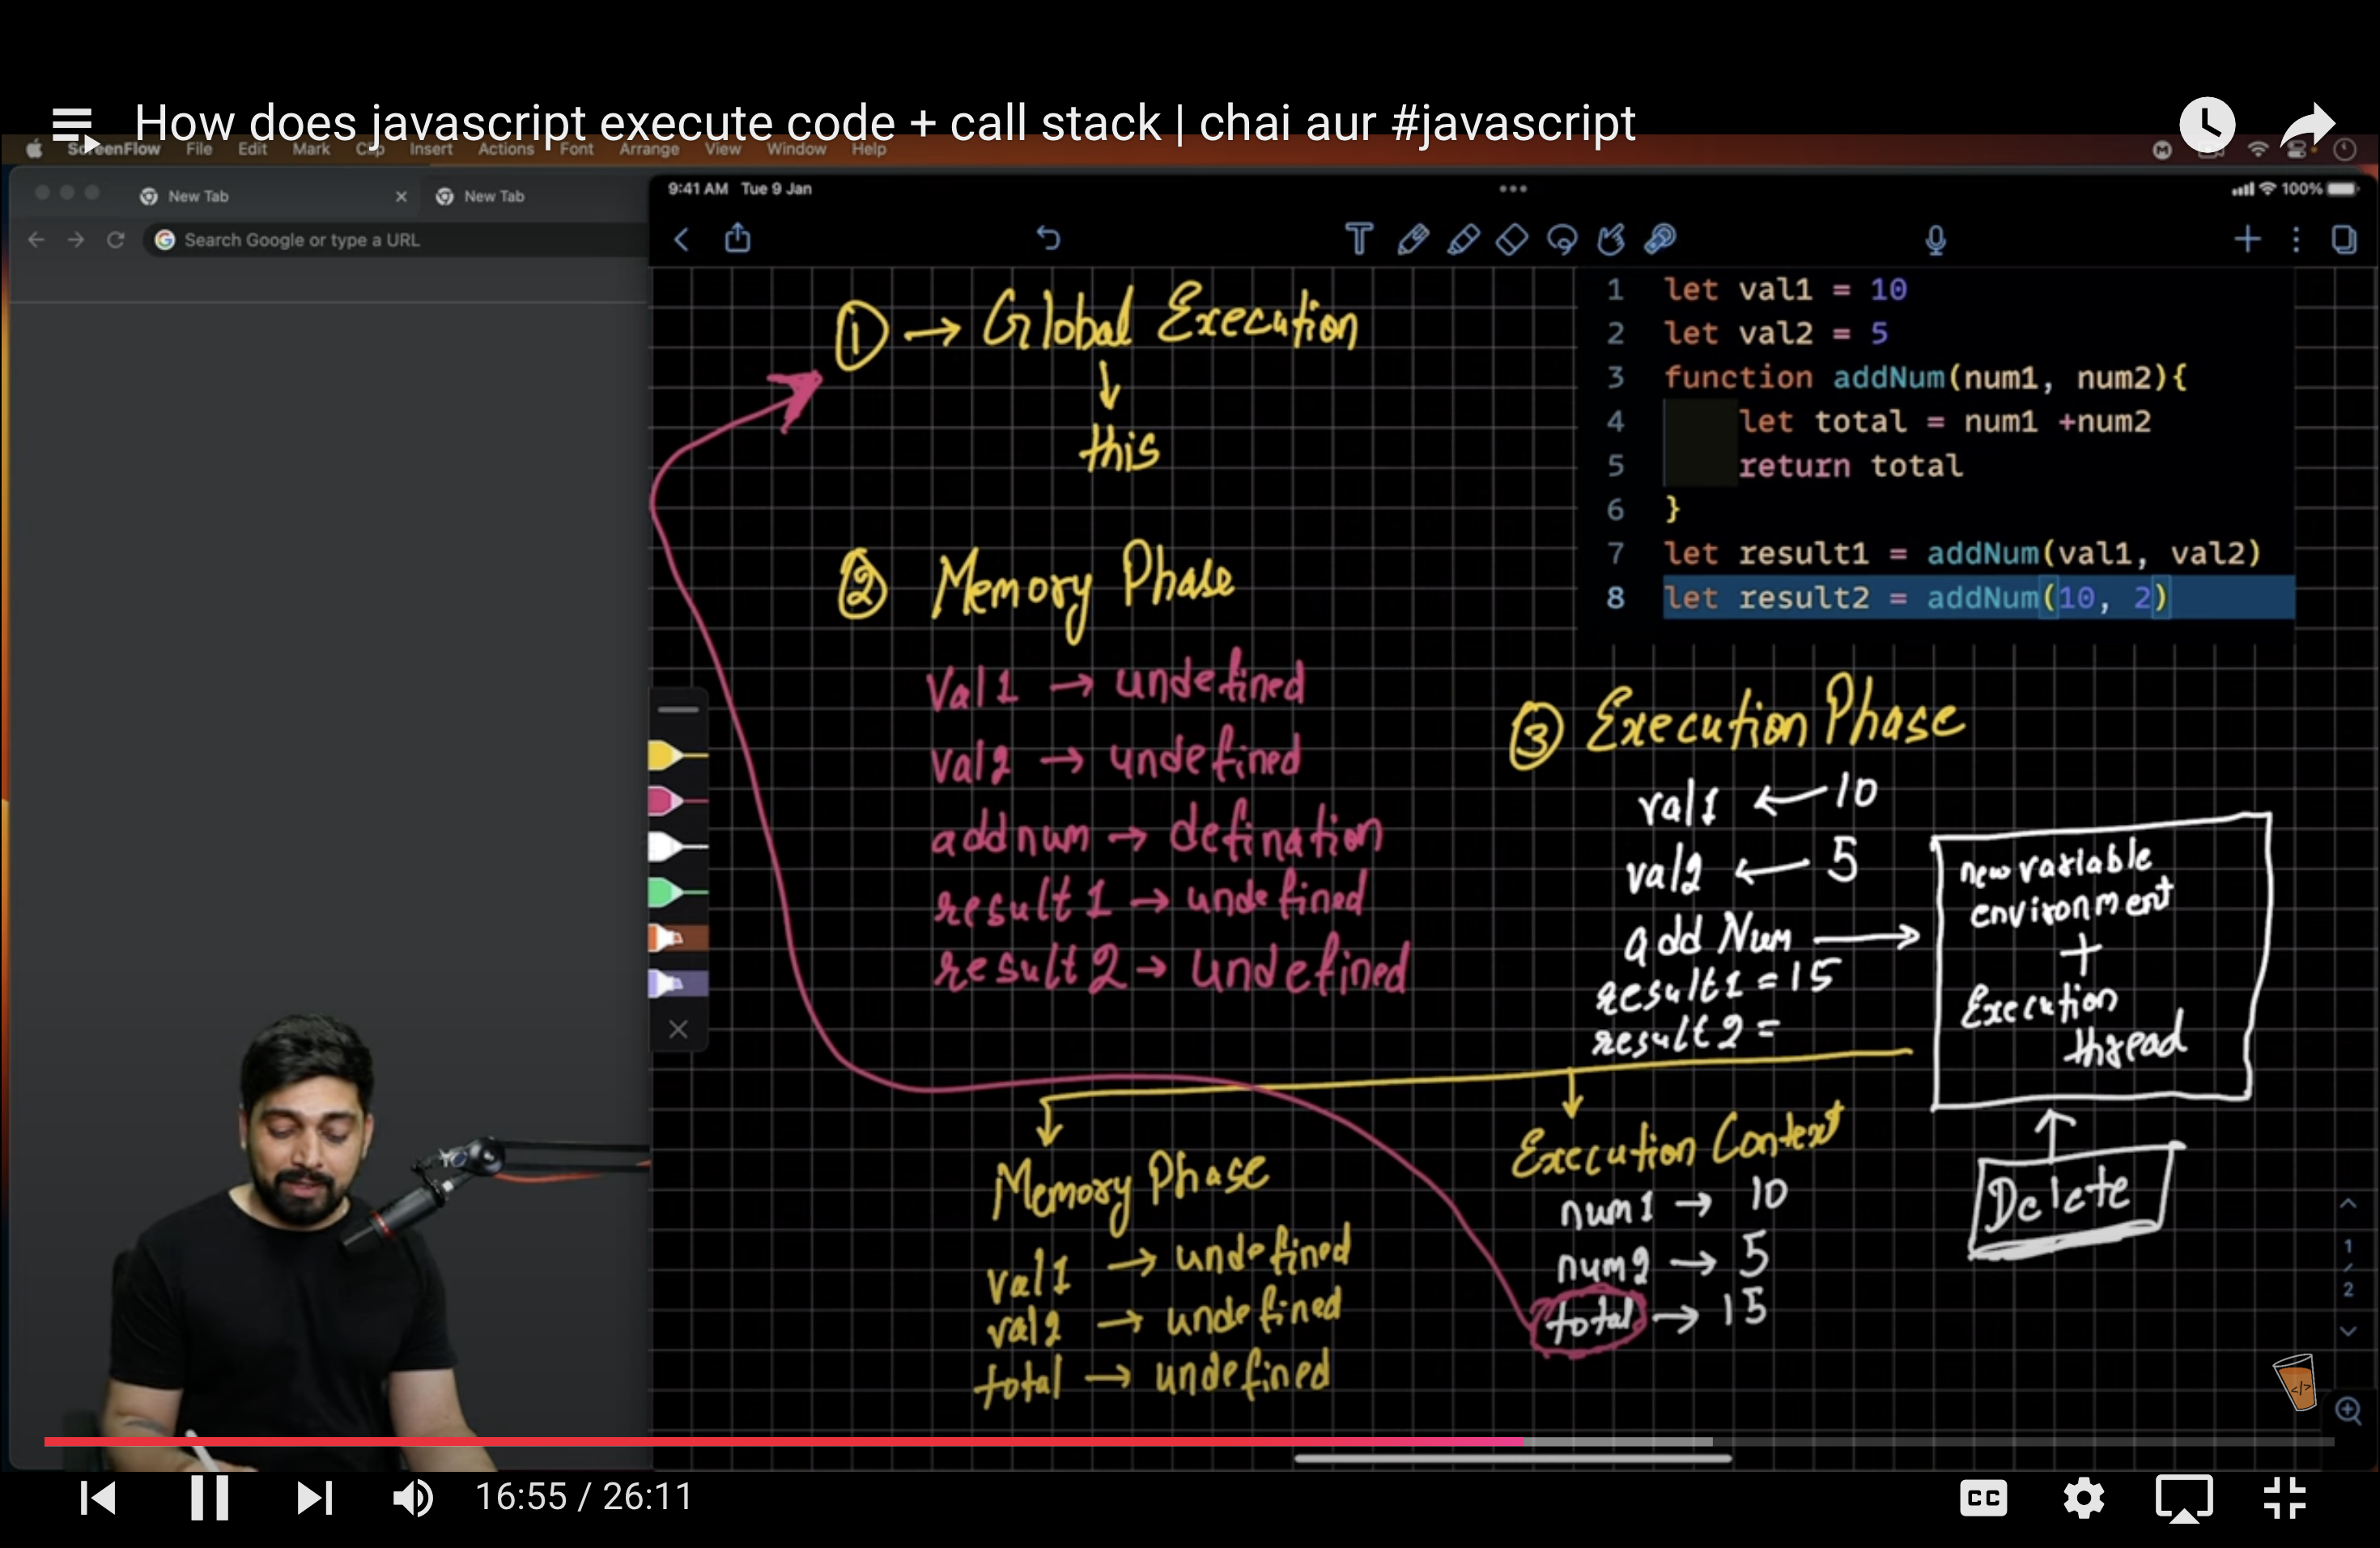 How does javascript execute code + call stack | chai aur #javascript
ScreenFlow File Edit Mark Clip Insert Actions Font Arrange View Window Help
New Tab
New Tab
Search Google or type a URL
9:41 AM Tue 9 Jan
100%
① → Global Execution
this
② Memory Phase
Val1 → undefined
val2 → undefined
addnum → defination
result1 → undefined
result2 → undefined
1 let val1 = 10
2 let val2 = 5
3 function addNum(num1, num2){
4 let total = num1 +num2
5 return total
6 }
7 let result1 = addNum(val1, val2)
8 let result2 = addNum(10, 2)
③ Execution Phase
val1 ← 10
val2 ← 5
add Num →
result1 = 15
result2 =
new variable
environment
+
Execution
thread
Delete
Memory Phase
val1 → undefined
val2 → undefined
total → undefined
Execution Context
num1 → 10
num2 → 5
total → 15
1
/
2
</>
16:55 / 26:11
CC